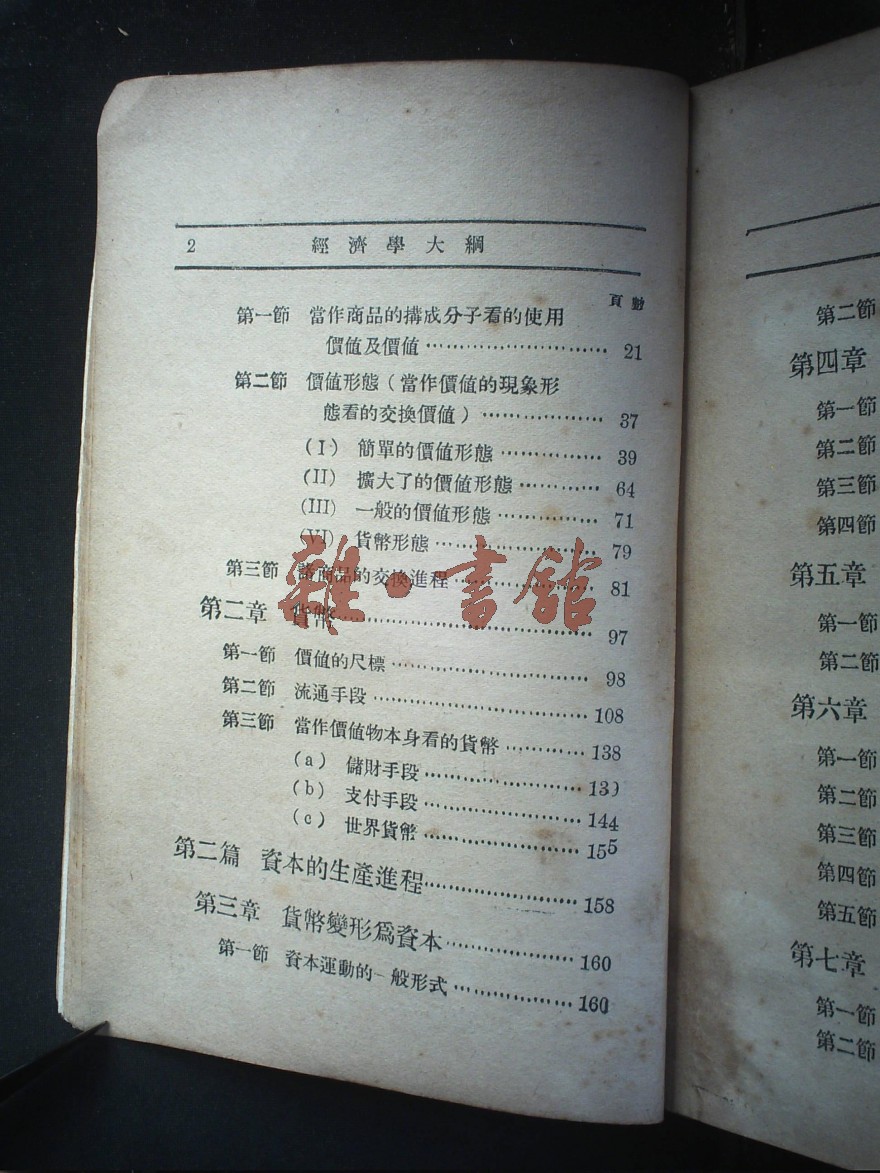 2 經濟學大綱
頁數
第一節 當作商品的搆成分子看的使用
價值及價值………………………… 21
第二節 價值形態（當作價值的現象形
態看的交換價值）……………… 37
(I) 簡單的價值形態 …………… 39
(II) 擴大了的價值形態 ………… 64
(III) 一般的價值形態 …………… 71
(VI) 貨幣形態 …………………… 79
第三節 諸商品的交換進程 ………………… 81
第二章 貨幣 …………………………………… 97
第一節 價值的尺標 ………………………… 98
第二節 流通手段 …………………………… 108
第三節 當作價值物本身看的貨幣 ………… 138
(a) 儲財手段 …………………… 139
(b) 支付手段 …………………… 144
(c) 世界貨幣 …………………… 155
第二篇 資本的生產進程 …………………… 158
第三章 貨幣變形爲資本 ………………… 160
第一節 資本運動的一般形式 …………… 160
雜·書館
第二節
第四章
第一節
第二節
第三節
第四節
第五章
第一節
第二節
第六章
第一節
第二節
第三節
第四節
第五節
第七章
第一節
第二節